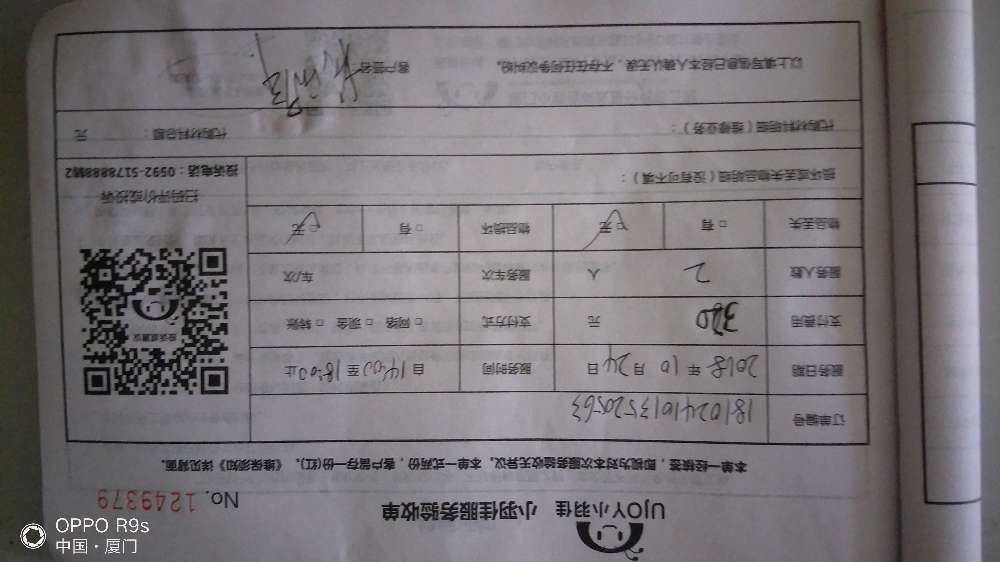 UJOY小羽佳 小羽佳服务验收单
No. 1249379
本单一经核签，即视为对本次服务验收无异议。本单一式两份，客户留存一份(红)。《维保须知》详见背面。
订单编号 1810241013520563
服务日期 2018 年 10 月 24 日 服务时间 自 14:00 至 18:00 止
支付费用 320 元 支付方式 □ 网络 □ 现金 □ 转账
服务人数 2 人 服务车次 车/次
物品丢失 □ 有 □ 无 物品损坏 □ 有 □ 无
损坏或丢失物品明细（没有可不填）：
投诉或建议
扫码评价或投诉
投诉电话：0592-5178888转2
代购材料明细（维修业务）： 代购材料总额： 元
以上填写信息已经本人确认无误，不存在任何争议纠纷。 客户签名
OPPO R9s
中国·厦门